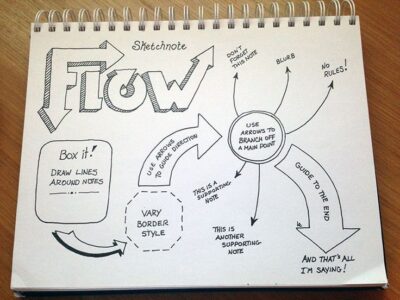 Sketchnote
FLOW
Box it!
DRAW LINES
AROUND NOTES
VARY
BORDER
STYLE
USE ARROWS
TO GUIDE DIRECTION
USE
ARROWS TO
BRANCH OFF
A MAIN POINT
DON'T
FORGET
THIS NOTE
BLURB
NO
RULES!
THIS IS A
SUPPORTING
NOTE
THIS IS
ANOTHER
SUPPORTING
NOTE
GUIDE TO THE END
AND THAT'S ALL
I'M SAYING!